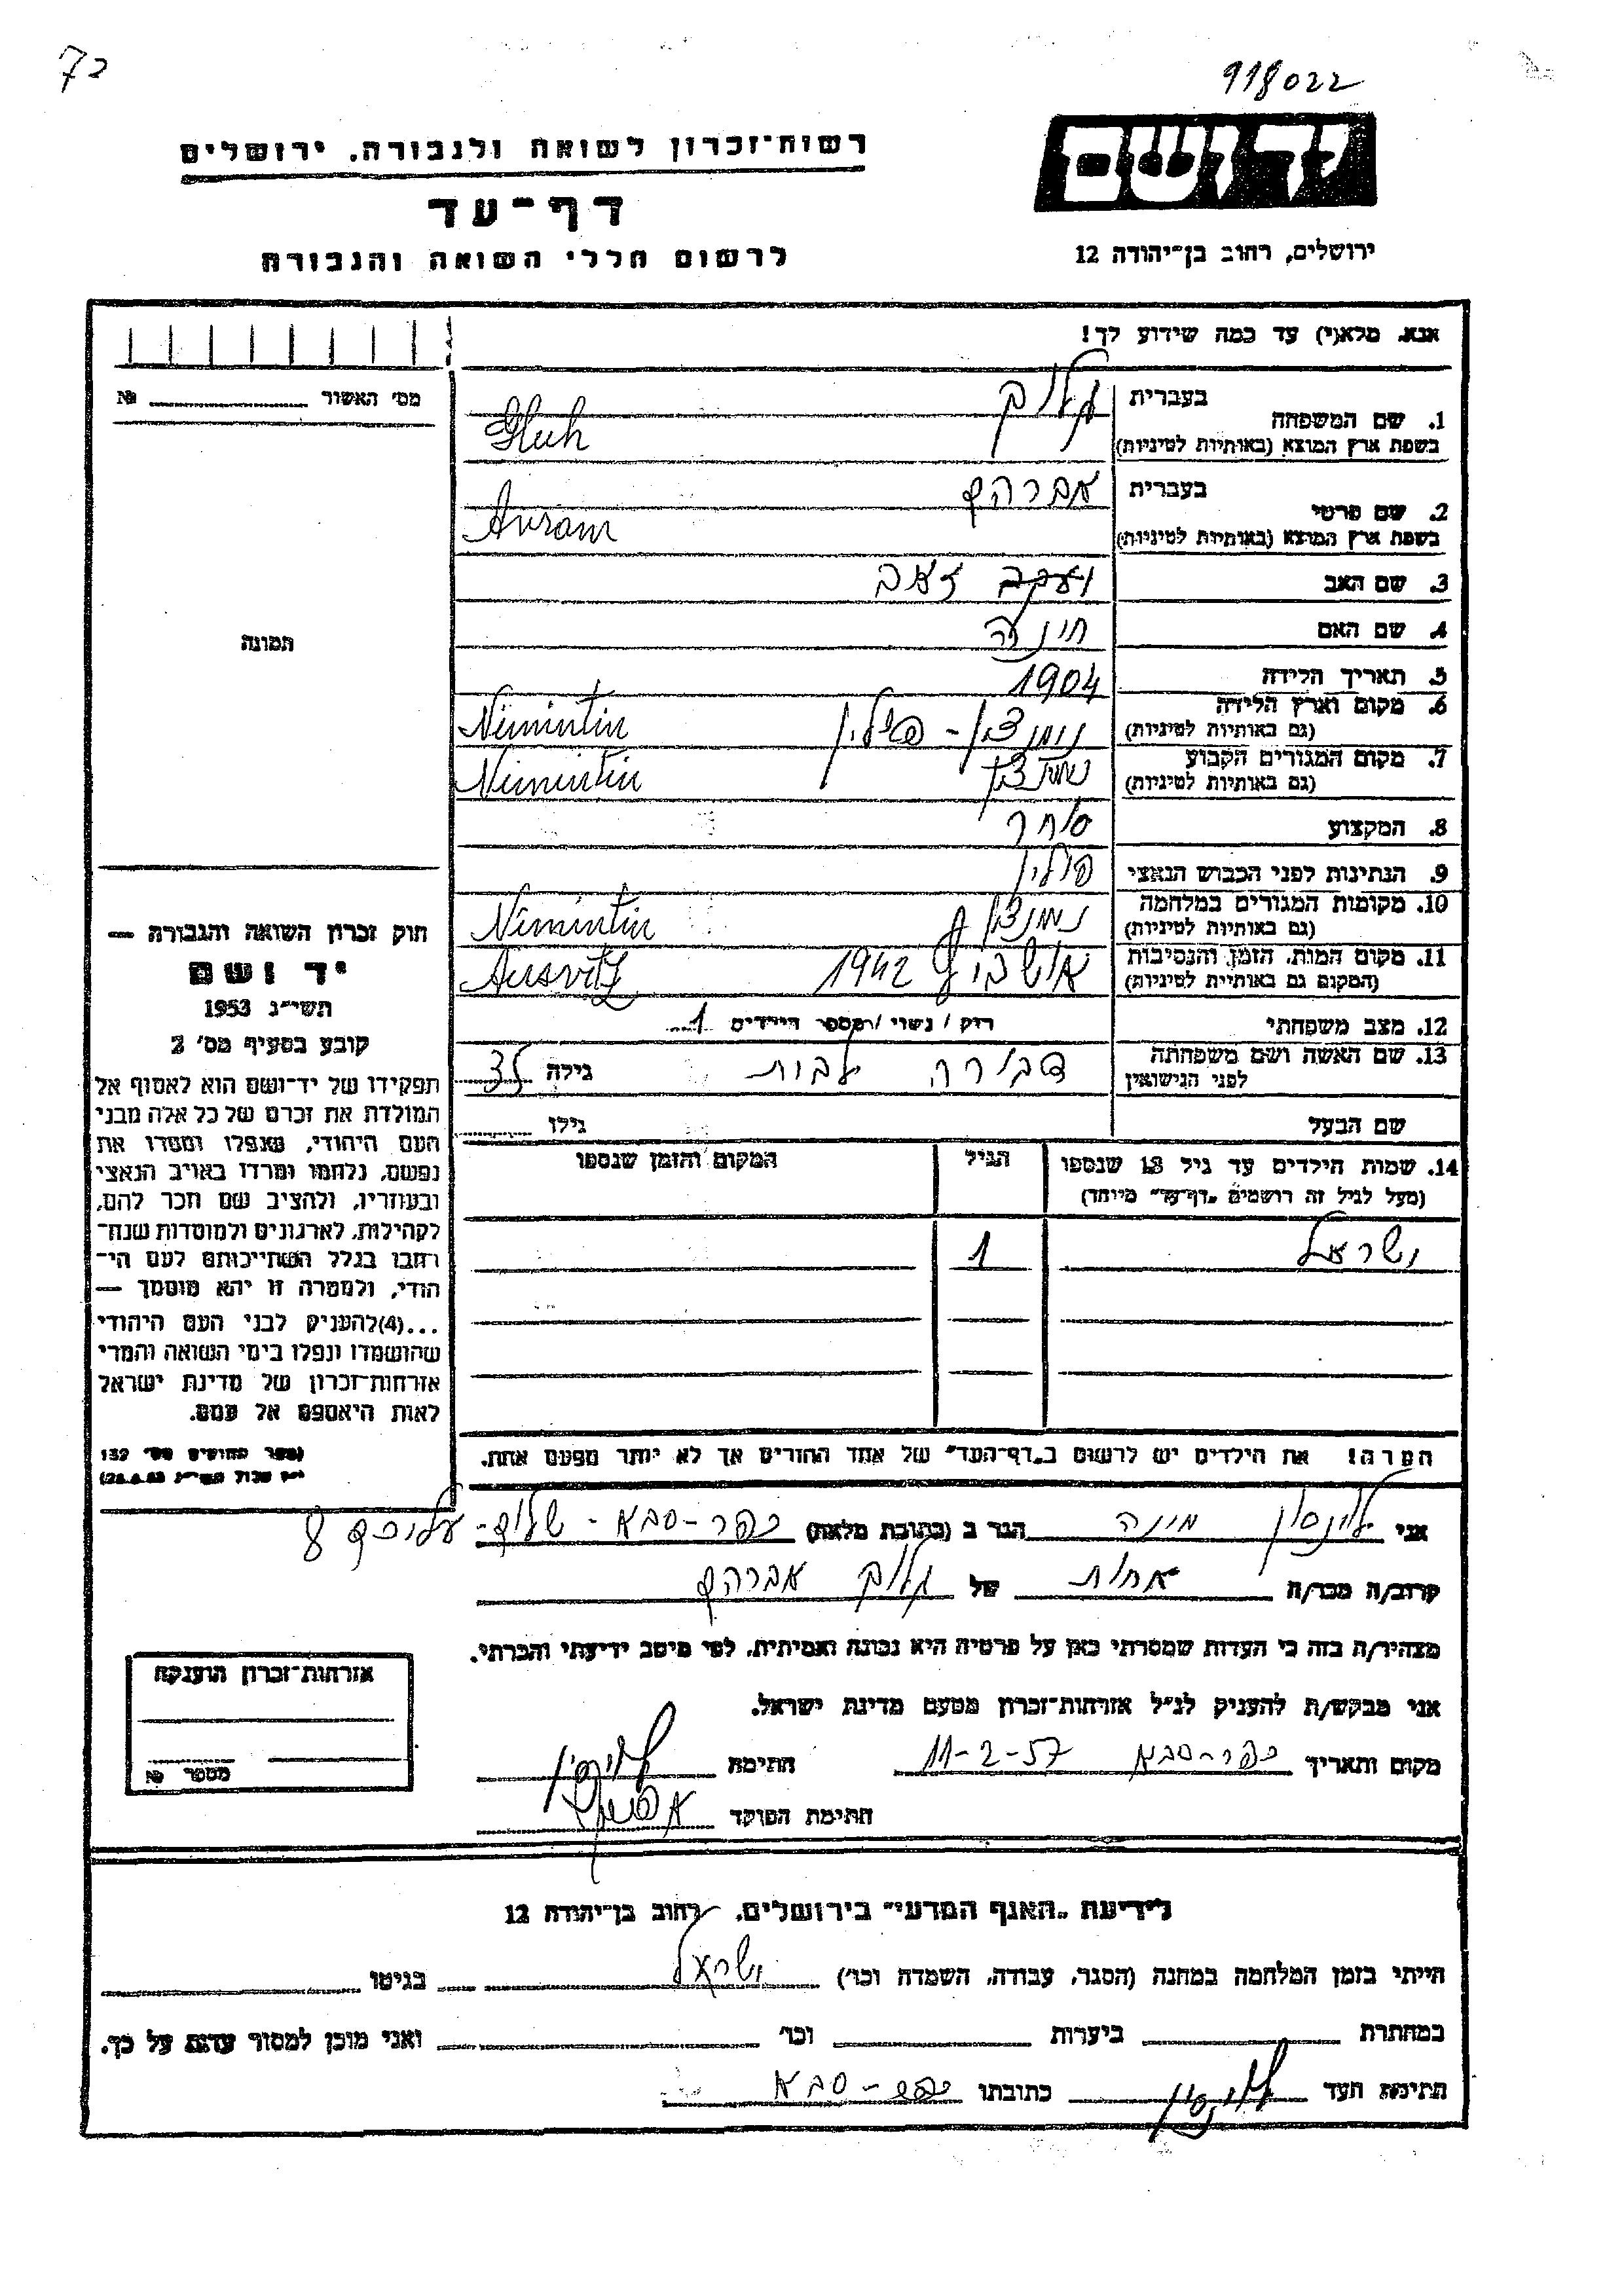 72
918022
יד ושם
רשות־זכרון לשואה ולגבורה, ירושלים
דף־עד
לרשום חללי השואה והגבורה
ירושלים, רחוב בן־יהודה 12
אנא, מלא(י) עד כמה שידוע לך!
מס׳ האשור № 
1. שם המשפחה בעברית גלוק
בשפת ארץ המוצא (באותיות לטיניות) Gluh
2. שם פרטי בעברית אברהם
בשפת ארץ המוצא (באותיות לטיניות) Avram
3. שם האב יעקב זאב
4. שם האם
תמונה
5. תאריך הלידה 1904
6. מקום וארץ הלידה
(גם באותיות לטיניות) Nimintin
7. מקום המגורים הקבוע
(גם באותיות לטיניות) Nimintin
8. המקצוע סוחר
9. הנתינות לפני הכבוש הנאצי פולין
10. מקומות המגורים במלחמה
(גם באותיות לטיניות) Nimintin
11. מקום המות, הזמן והנסיבות
(המקום גם באותיות לטיניות) 1942 Ausvitz
12. מצב משפחתי רוק / נשוי / מספר הילדים 1
13. שם האשה ושם משפחתה
לפני הנישואין דבורה גילה
שם הבעל גילו
14. שמות הילדים עד גיל 18 שנספו
(מעל לגיל זה רושמים „דף־עד״ מיוחד)
הגיל
המקום והזמן שנספו
ישראל 1
הערה! את הילדים יש לרשום ב„דף־העד״ של אחד ההורים אך לא יותר מפעם אחת.
חוק זכרון השואה והגבורה —
יד ושם
תשי״ג 1953
קובע בסעיף מס׳ 2
תפקידו של יד־ושם הוא לאסוף אל
המולדת את זכרם של כל אלה מבני
העם היהודי, שנפלו ומסרו את
נפשם, נלחמו ומרדו באויב הנאצי
ובעוזריו, ולהציב שם וזכר להם,
לקהילות, לארגונים ולמוסדות שנח־
רבו בגלל השתייכותם לעם הי־
הודי, ולמטרה זו יהא מוסמך —
...(4)להעניק לבני העם היהודי
שהושמדו ונפלו בימי השואה והמרי
אזרחות־זכרון של מדינת ישראל
לאות היאספם אל עמם.
(ספר החוקים מס׳ 132
אני לוינסון מינה הגר ב (כתובת מלאה) כפר-סבא - שלום-עליכם 8
קרוב/ה מכר/ה אחות של גלוק אברהם
מצהיר/ה בזה כי העדות שמסרתי כאן על פרטיה היא נכונה ואמיתית, לפי מיטב ידיעתי והכרתי.
אני מבקש/ת להעניק לנ״ל אזרחות־זכרון מטעם מדינת ישראל.
מקום ותאריך כפר-סבא 11-2-57 חתימה
חתימת הפוקד
אזרחות־זכרון הוענקה
מספר №
לידיעת „האגף המדעי״ בירושלים, רחוב בן־יהודה 12
הייתי בזמן המלחמה במחנה (הסגר, עבודה, השמדה וכו׳) ישראל בגיטו
במחתרת ביערות וכו׳ ואני מוכן למסור עדות על כך.
חתימת העד כתובתו כפר-סבא